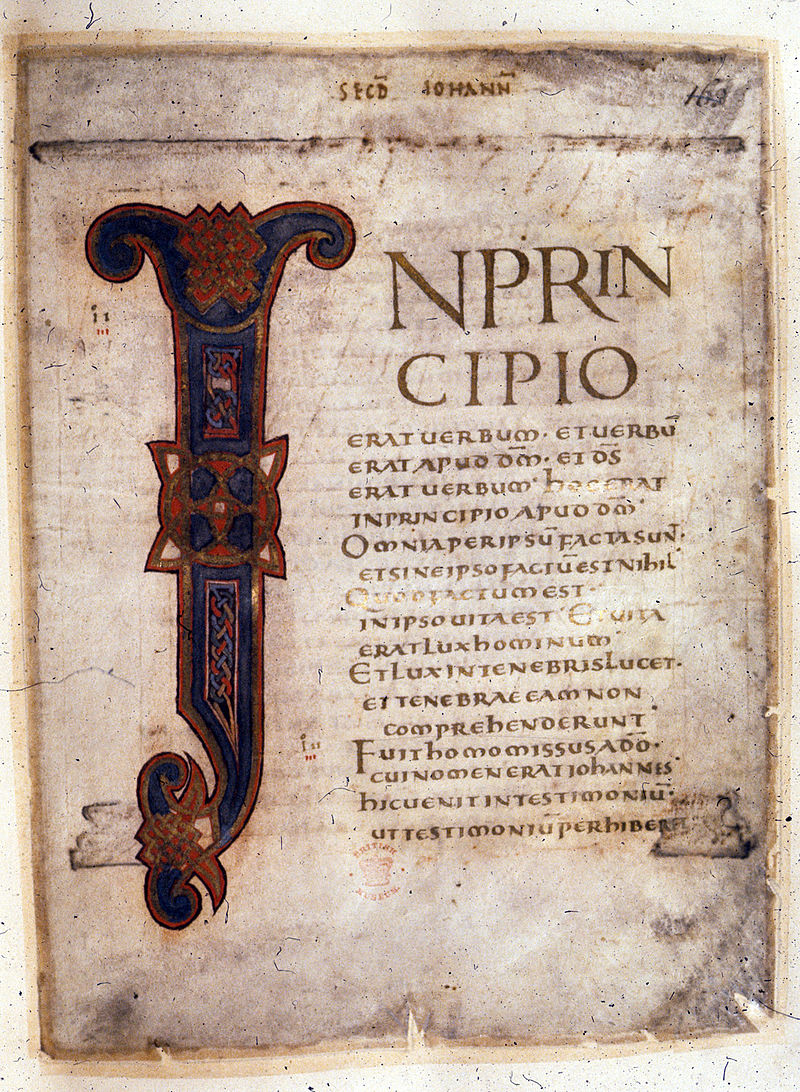 SECD̄ IOHANN̄
169
INPRIN
CIPIO
ERAT UERBUM · ET UERBŪ
ERAT APUD DM̄ · ET DS̄
ERAT UERBUM · HOC ERAT
IN PRINCIPIO APUD DM̄
OMNIA PER IPSŪ FACTA SUN̄T ·
ET SINE IPSO FACTŪ EST NIHIL
QUOD FACTUM EST ·
IN IPSO UITA EST · ET UITA
ERAT LUX HOMINUM
ET LUX IN TENEBRIS LUCET ·
ET TENEBRAE EAM NON
COMPREHENDERUNT
FUIT HOMO MISSUS A DŌ ·
CUI NOMEN ERAT IOHANNES
HIC UENIT IN TESTIMONIŪ ·
UT TESTIMONIŪ PERHIBER
BRITISH
MUSEUM